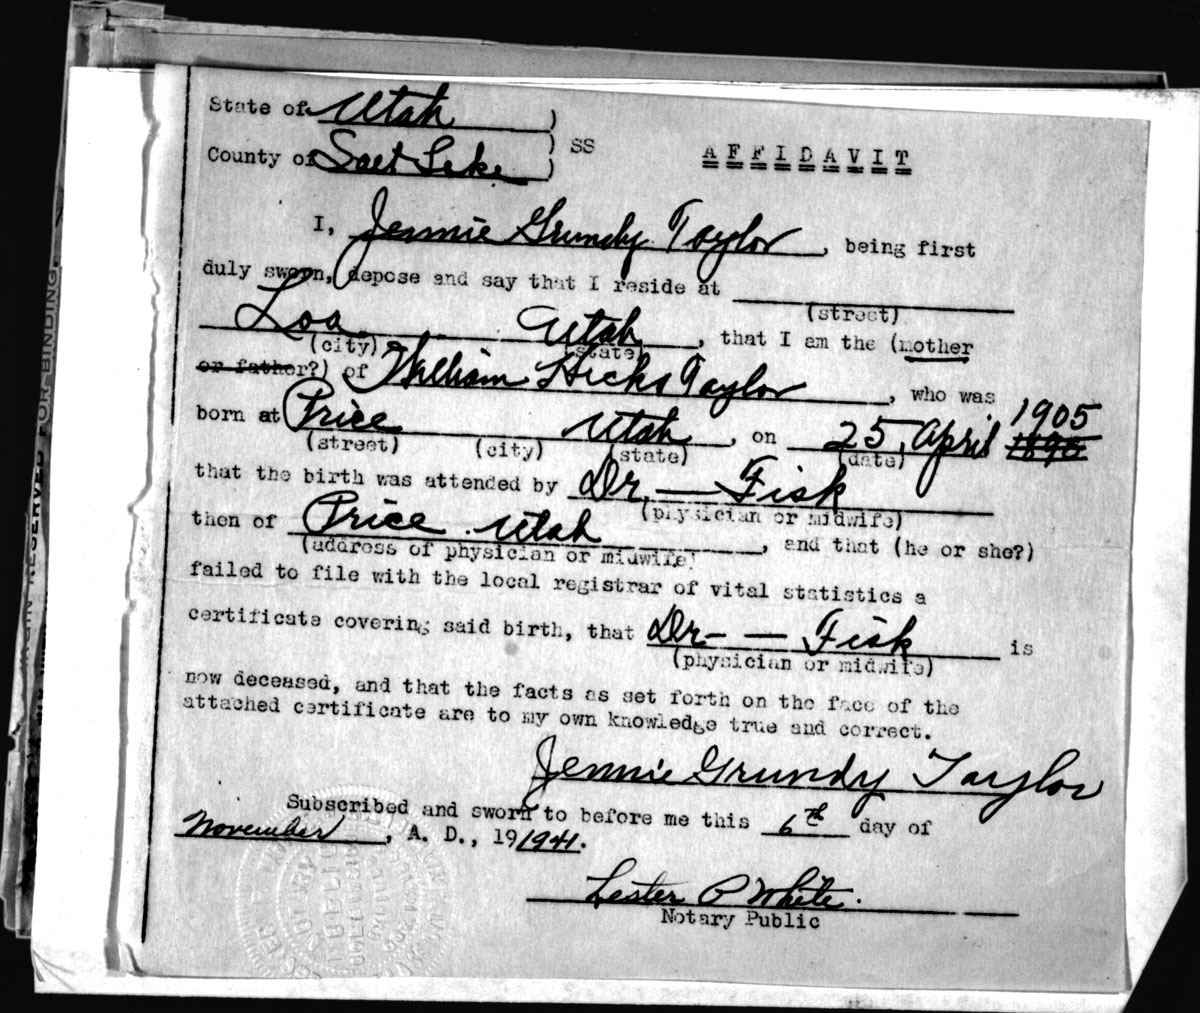 State of Utah )
) SS
County of Salt Lake )
AFFIDAVIT
I, Jennie Grundy Taylor, being first
duly sworn, depose and say that I reside at
(street)
Loa Utah, that I am the (mother
(city) (state)
or father?) of William Hicks Taylor, who was
born at Price Utah, on 25, April 1905 1890
(street) (city) (state) (date)
that the birth was attended by Dr. — Fisk
(physician or midwife)
then of Price Utah, and that (he or she?)
(address of physician or midwife)
failed to file with the local registrar of vital statistics a
certificate covering said birth, that Dr - — Fisk is
(physician or midwife)
now deceased, and that the facts as set forth on the face of the
attached certificate are to my own knowledge true and correct.
Jennie Grundy Taylor
Subscribed and sworn to before me this 6th day of
November, A. D., 19 1941.
Lester P White.
Notary Public
RESERVED FOR BINDING.